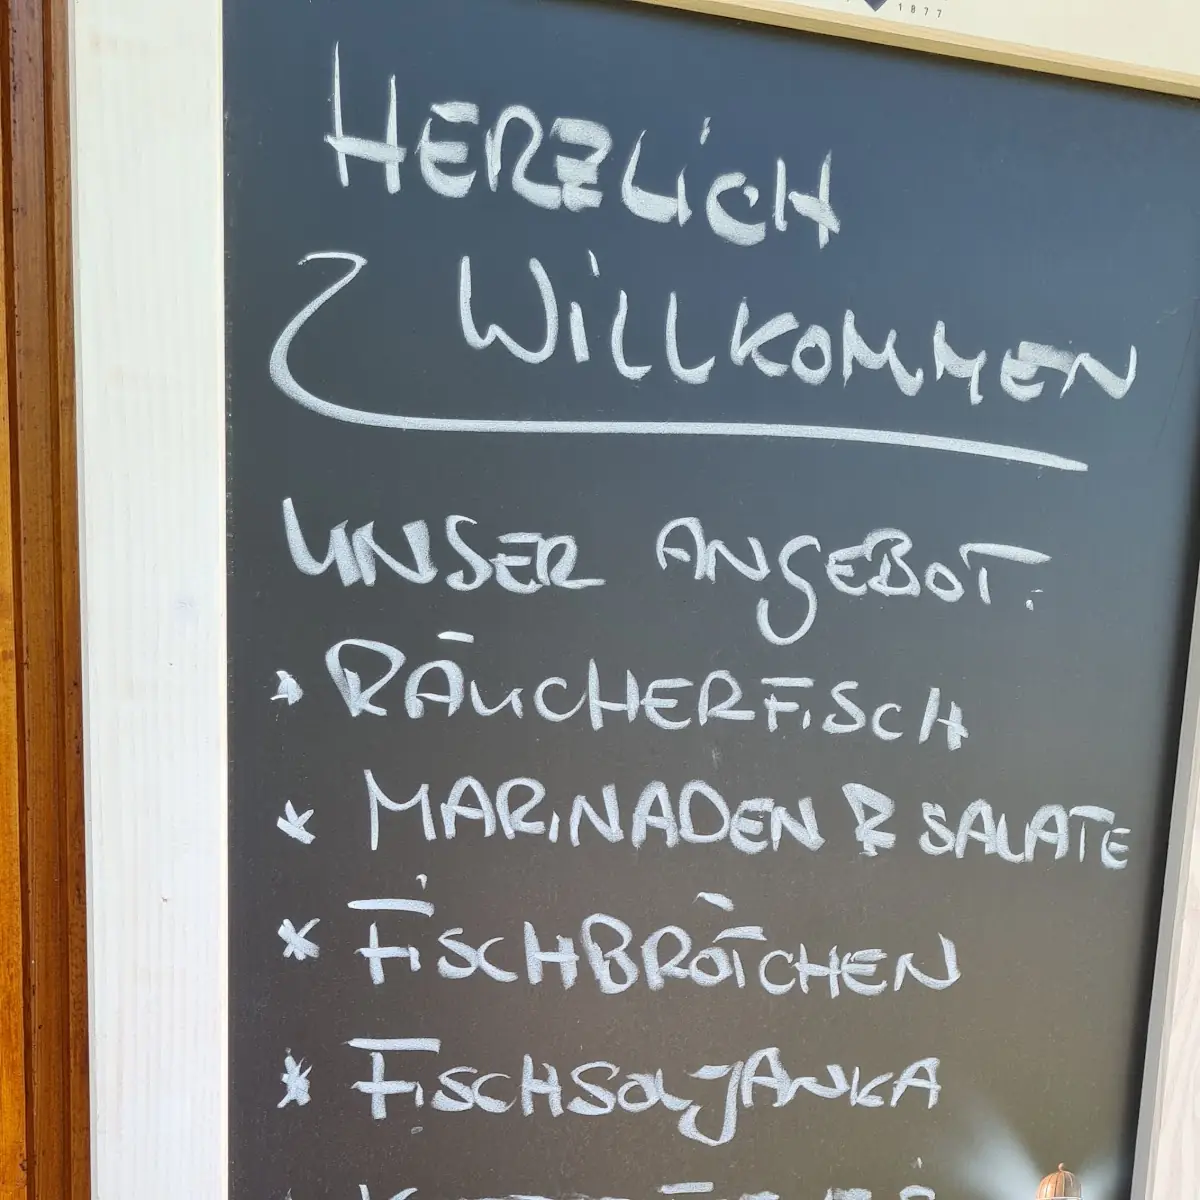 1877
HERZLiCH
WiLLKOMMEN
UNSER ANGEBOT:
* RÄUCHERFISCH
* MARINADEN & SALATE
* FiSCHBRÖTCHEN
* FISCHSOLJANKA